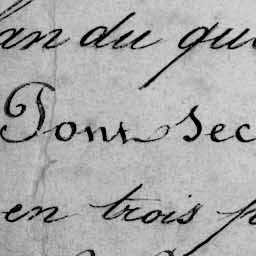 an du qu
Pont sec
en trois p